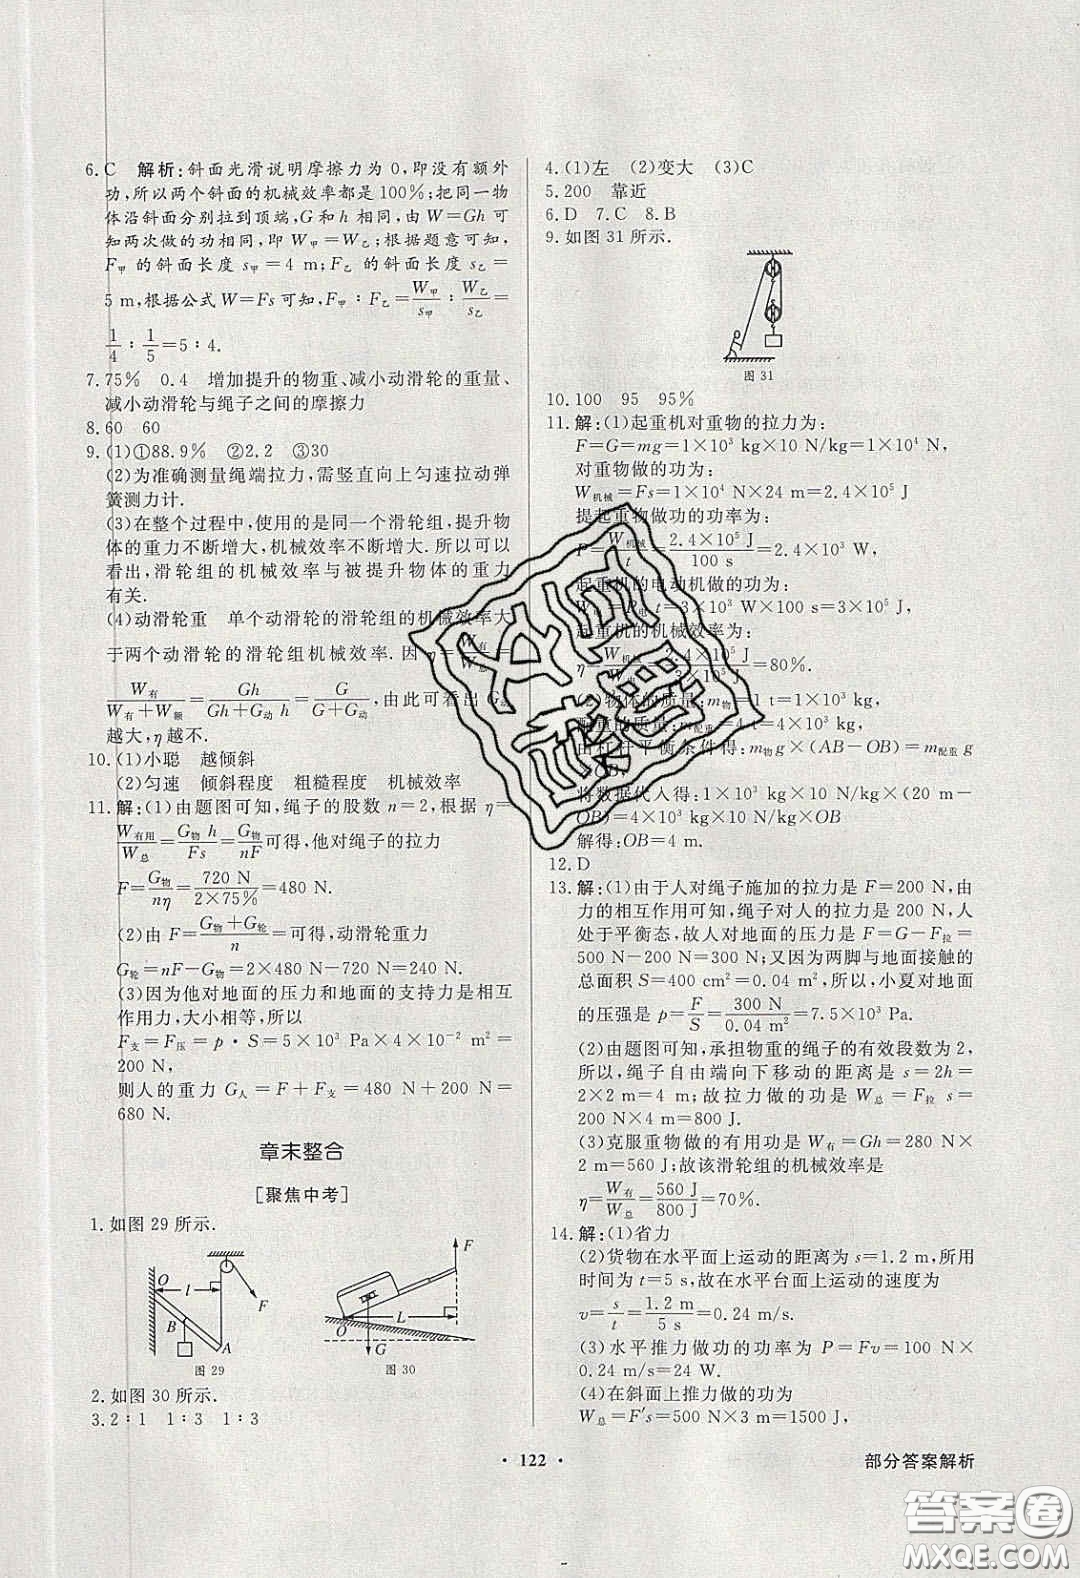 6.C 解析:斜面光滑说明摩擦力为0,即没有额外
功,所以两个斜面的机械效率都是100%;把同一物
体沿斜面分别拉到顶端,G和h相同,由W=Gh可
知两次做的功相同,即W甲=W乙;根据题意可知,
F甲的斜面长度s甲=4 m;F乙的斜面长度s乙=
5 m,根据公式W=Fs可知,F甲∶F乙=W甲/s甲∶W乙/s乙=
1/4∶1/5=5∶4.
7.75% 0.4 增加提升的物重、减小动滑轮的重量、
减小动滑轮与绳子之间的摩擦力
8.60 60
9.(1)①88.9% ②2.2 ③30
(2)为准确测量绳端拉力,需竖直向上匀速拉动弹
簧测力计.
(3)在整个过程中,使用的是同一个滑轮组,提升物
体的重力不断增大,机械效率不断增大.所以可以
看出,滑轮组的机械效率与被提升物体的重力
有关.
(4)动滑轮重 单个动滑轮的滑轮组的机械效率大
于两个动滑轮的滑轮组机械效率.因η=W有/W总=
W有/(W有+W额)=Gh/(Gh+G动h)=G/(G+G动),由此可看出G动
越大,η越不.
10.(1)小聪 越倾斜
(2)匀速 倾斜程度 粗糙程度 机械效率
11.解:(1)由题图可知,绳子的股数n=2,根据η=
W有用/W总=G物h/Fs=G物/nF可得,他对绳子的拉力
F=G物/nη=720 N/(2×75%)=480 N.
(2)由F=(G物+G轮)/n可得,动滑轮重力
G轮=nF-G物=2×480 N-720 N=240 N.
(3)因为他对地面的压力和地面的支持力是相互
作用力,大小相等,所以
F支=F压=p·S=5×10³ Pa×4×10⁻² m²=
200 N,
则人的重力G人=F+F支=480 N+200 N=
680 N.
章末整合
[聚焦中考]
1.如图29所示.
O l B A F
图29
F O L G
图30
2.如图30所示.
3.2∶1 1∶3 1∶3
4.(1)左 (2)变大 (3)C
5.200 靠近
6.D 7.C 8.B
9.如图31所示.
图31
10.100 95 95%
11.解:(1)起重机对重物的拉力为:
F=G=mg=1×10³ kg×10 N/kg=1×10⁴ N,
对重物做的功为:
W机械=Fs=1×10⁴ N×24 m=2.4×10⁵ J
提起重物做功的功率为:
P=W机械/t=2.4×10⁵ J/100 s=2.4×10³ W,
起重机的电动机做的功为:
t=3×10³ W×100 s=3×10⁵ J,
起重机的机械效率为:
η=W机械/=2.4×10⁵ J/=80%.
(2)物体的质量:m物=1 t=1×10³ kg,
配重的质量:m配重=4 t=4×10³ kg,
由杠杆平衡条件得:m物g×(AB-OB)=m配重g
×OB,
将数据代人得:1×10³ kg×10 N/kg×(20 m-
OB)=4×10³ kg×10 N/kg×OB
解得:OB=4 m.
12.D
13.解:(1)由于人对绳子施加的拉力是F=200 N,由
力的相互作用可知,绳子对人的拉力是200 N,人
处于平衡态,故人对地面的压力是F=G-F拉=
500 N-200 N=300 N;又因为两脚与地面接触的
总面积S=400 cm²=0.04 m².所以,小夏对地面
的压强是p=F/S=300 N/0.04 m²=7.5×10³ Pa.
(2)由题图可知,承担物重的绳子的有效段数为2,
所以,绳子自由端向下移动的距离是s=2h=
2×2 m=4 m;故拉力做的总功是W总=F拉 s=
200 N×4 m=800 J.
(3)克服重物做的有用功是W有=Gh=280 N×
2 m=560 J;故该滑轮组的机械效率是
η=W有/W总=560 J/800 J=70%.
14.解:(1)省力
(2)货物在水平面上运动的距离为s=1.2 m,所用
时间为t=5 s,故在水平台面上运动的速度为
v=s/t=1.2 m/5 s=0.24 m/s.
(3)水平推力做功的功率为P=Fv=100 N×
0.24 m/s=24 W.
(4)在斜面上推力做的功为
W总=F′s=500 N×3 m=1500 J,
·122·
部分答案解析
答案卷
MXQE.COM